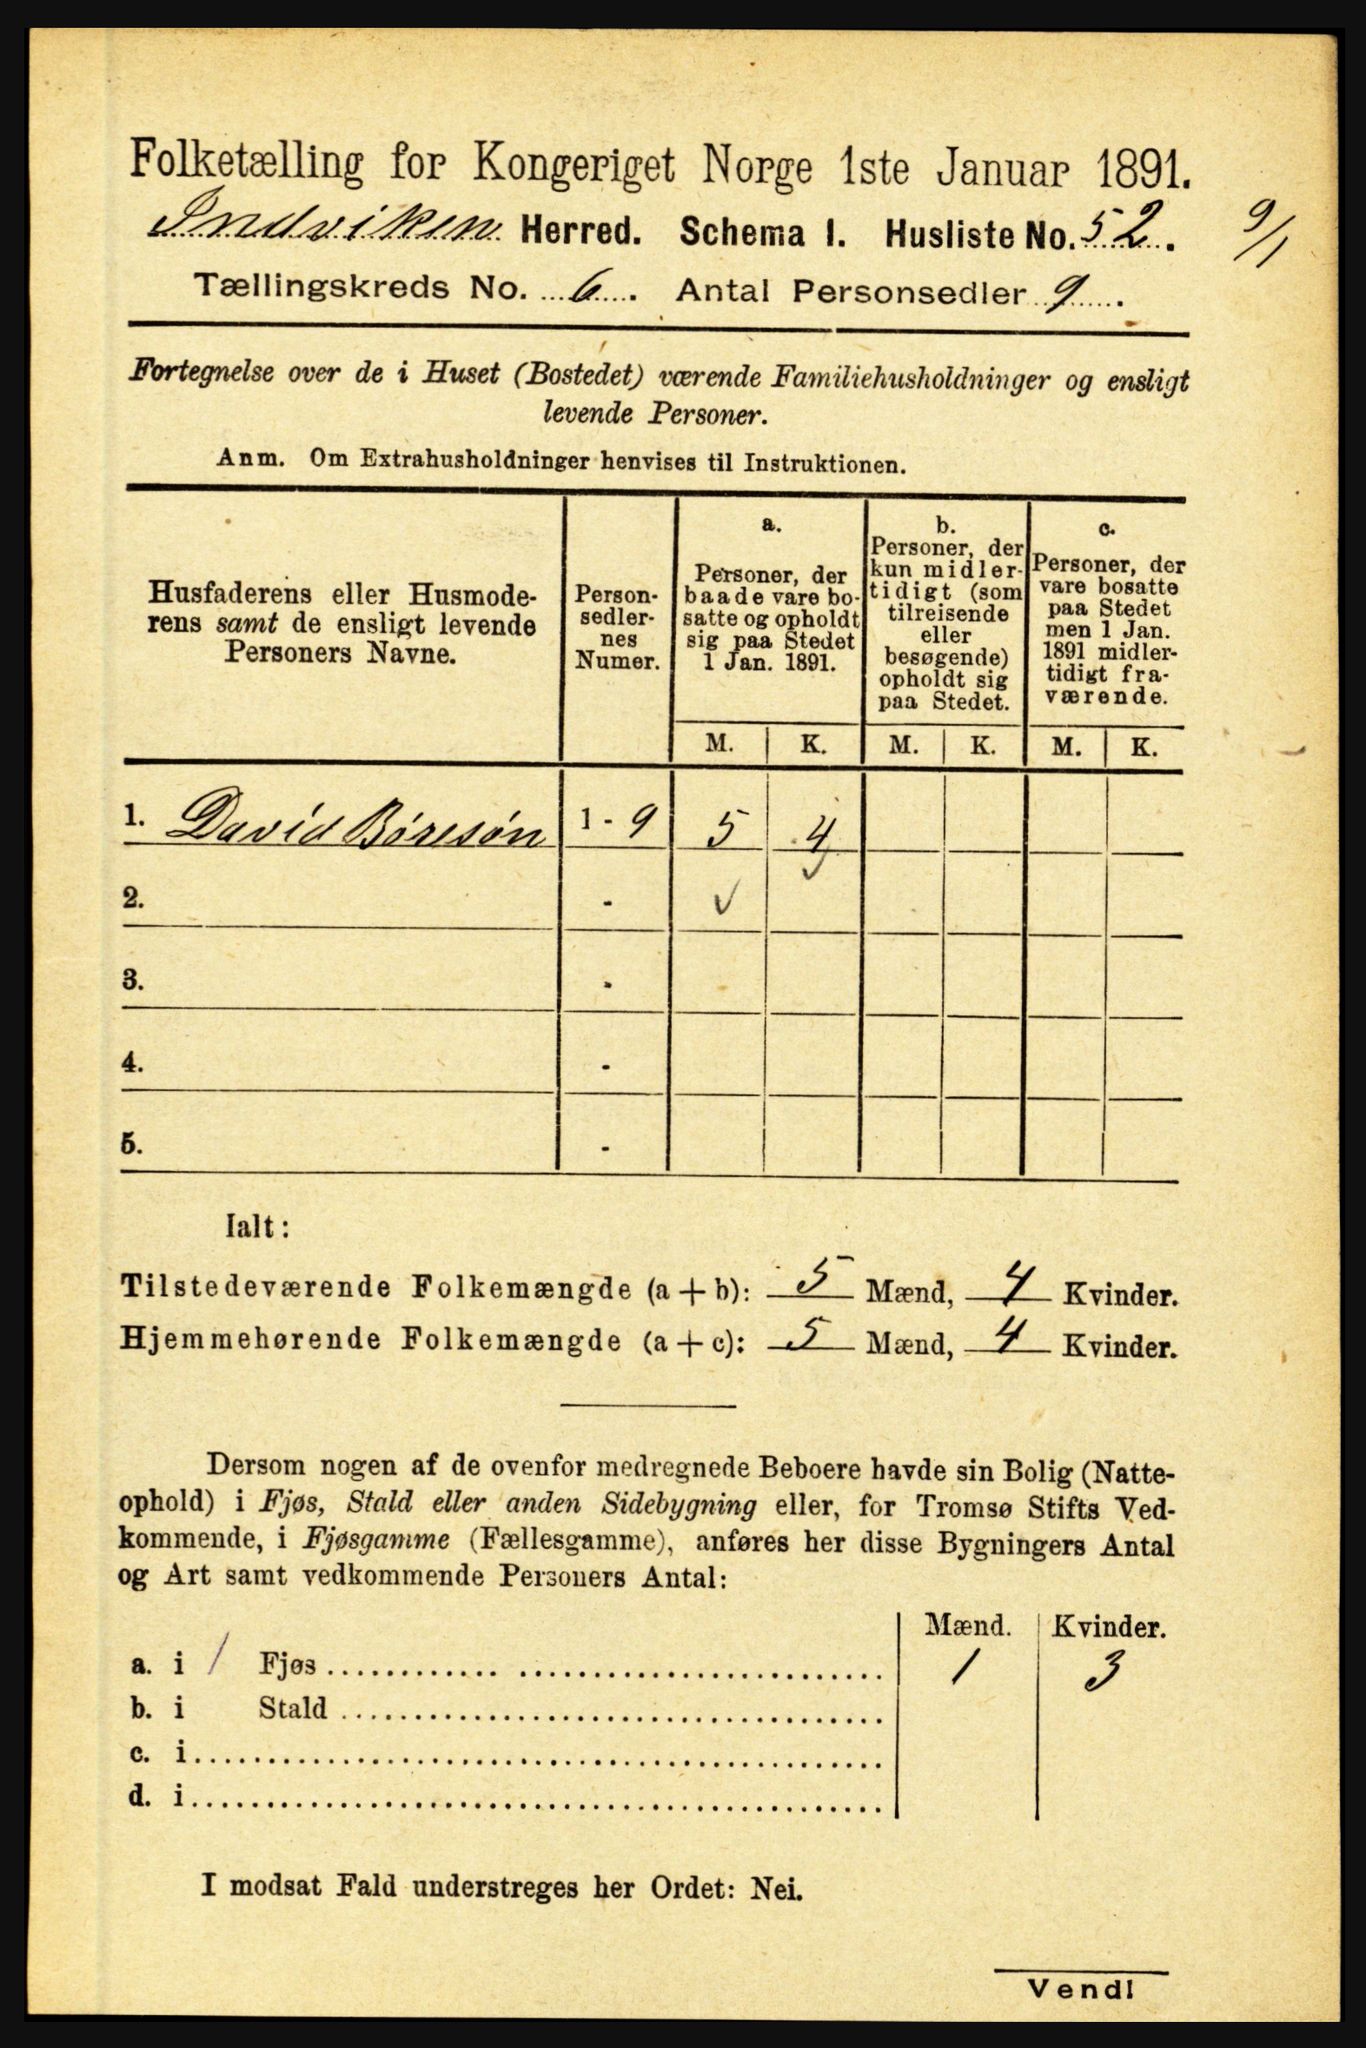 Folketælling for Kongeriget Norge 1ste Januar 1891.
Indviken Herred. Schema I. Husliste No. 52. 9/1
Tællingskreds No. 6. Antal Personsedler 9.
Fortegnelse over de i Huset (Bostedet) værende Familiehusholdninger og ensligt
levende Personer.
Anm. Om Extrahusholdninger henvises til Instruktionen.
Husfaderens eller Husmode-
rens samt de ensligt levende
Personers Navne.
Person-
sedler-
nes
Numer.
a.
Personer, der
baade vare bo-
satte og opholdt
sig paa Stedet
1 Jan. 1891.
b.
Personer, der
kun midler-
tidigt (som
tilreisende
eller
besøgende)
opholdt sig
paa Stedet.
c.
Personer, der
vare bosatte
paa Stedet
men 1 Jan.
1891 midler-
tidigt fra-
værende.
M. K. M. K. M. K.
1. David Børesøn 1 - 9 5 4
2. -
3. -
4. -
5. -
Ialt:
Tilstedeværende Folkemængde (a + b): 5 Mænd, 4 Kvinder.
Hjemmehørende Folkemængde (a + c): 5 Mænd, 4 Kvinder.
Dersom nogen af de ovenfor medregnede Beboere havde sin Bolig (Natte-
ophold) i Fjøs, Stald eller anden Sidebygning eller, for Tromsø Stifts Ved-
kommende, i Fjøsgamme (Fællesgamme), anføres her disse Bygningers Antal
og Art samt vedkommende Personers Antal:
Mænd. Kvinder.
a. i 1 Fjøs 1 3
b. i Stald
c. i
d. i
I modsat Fald understreges her Ordet: Nei.
Vend!